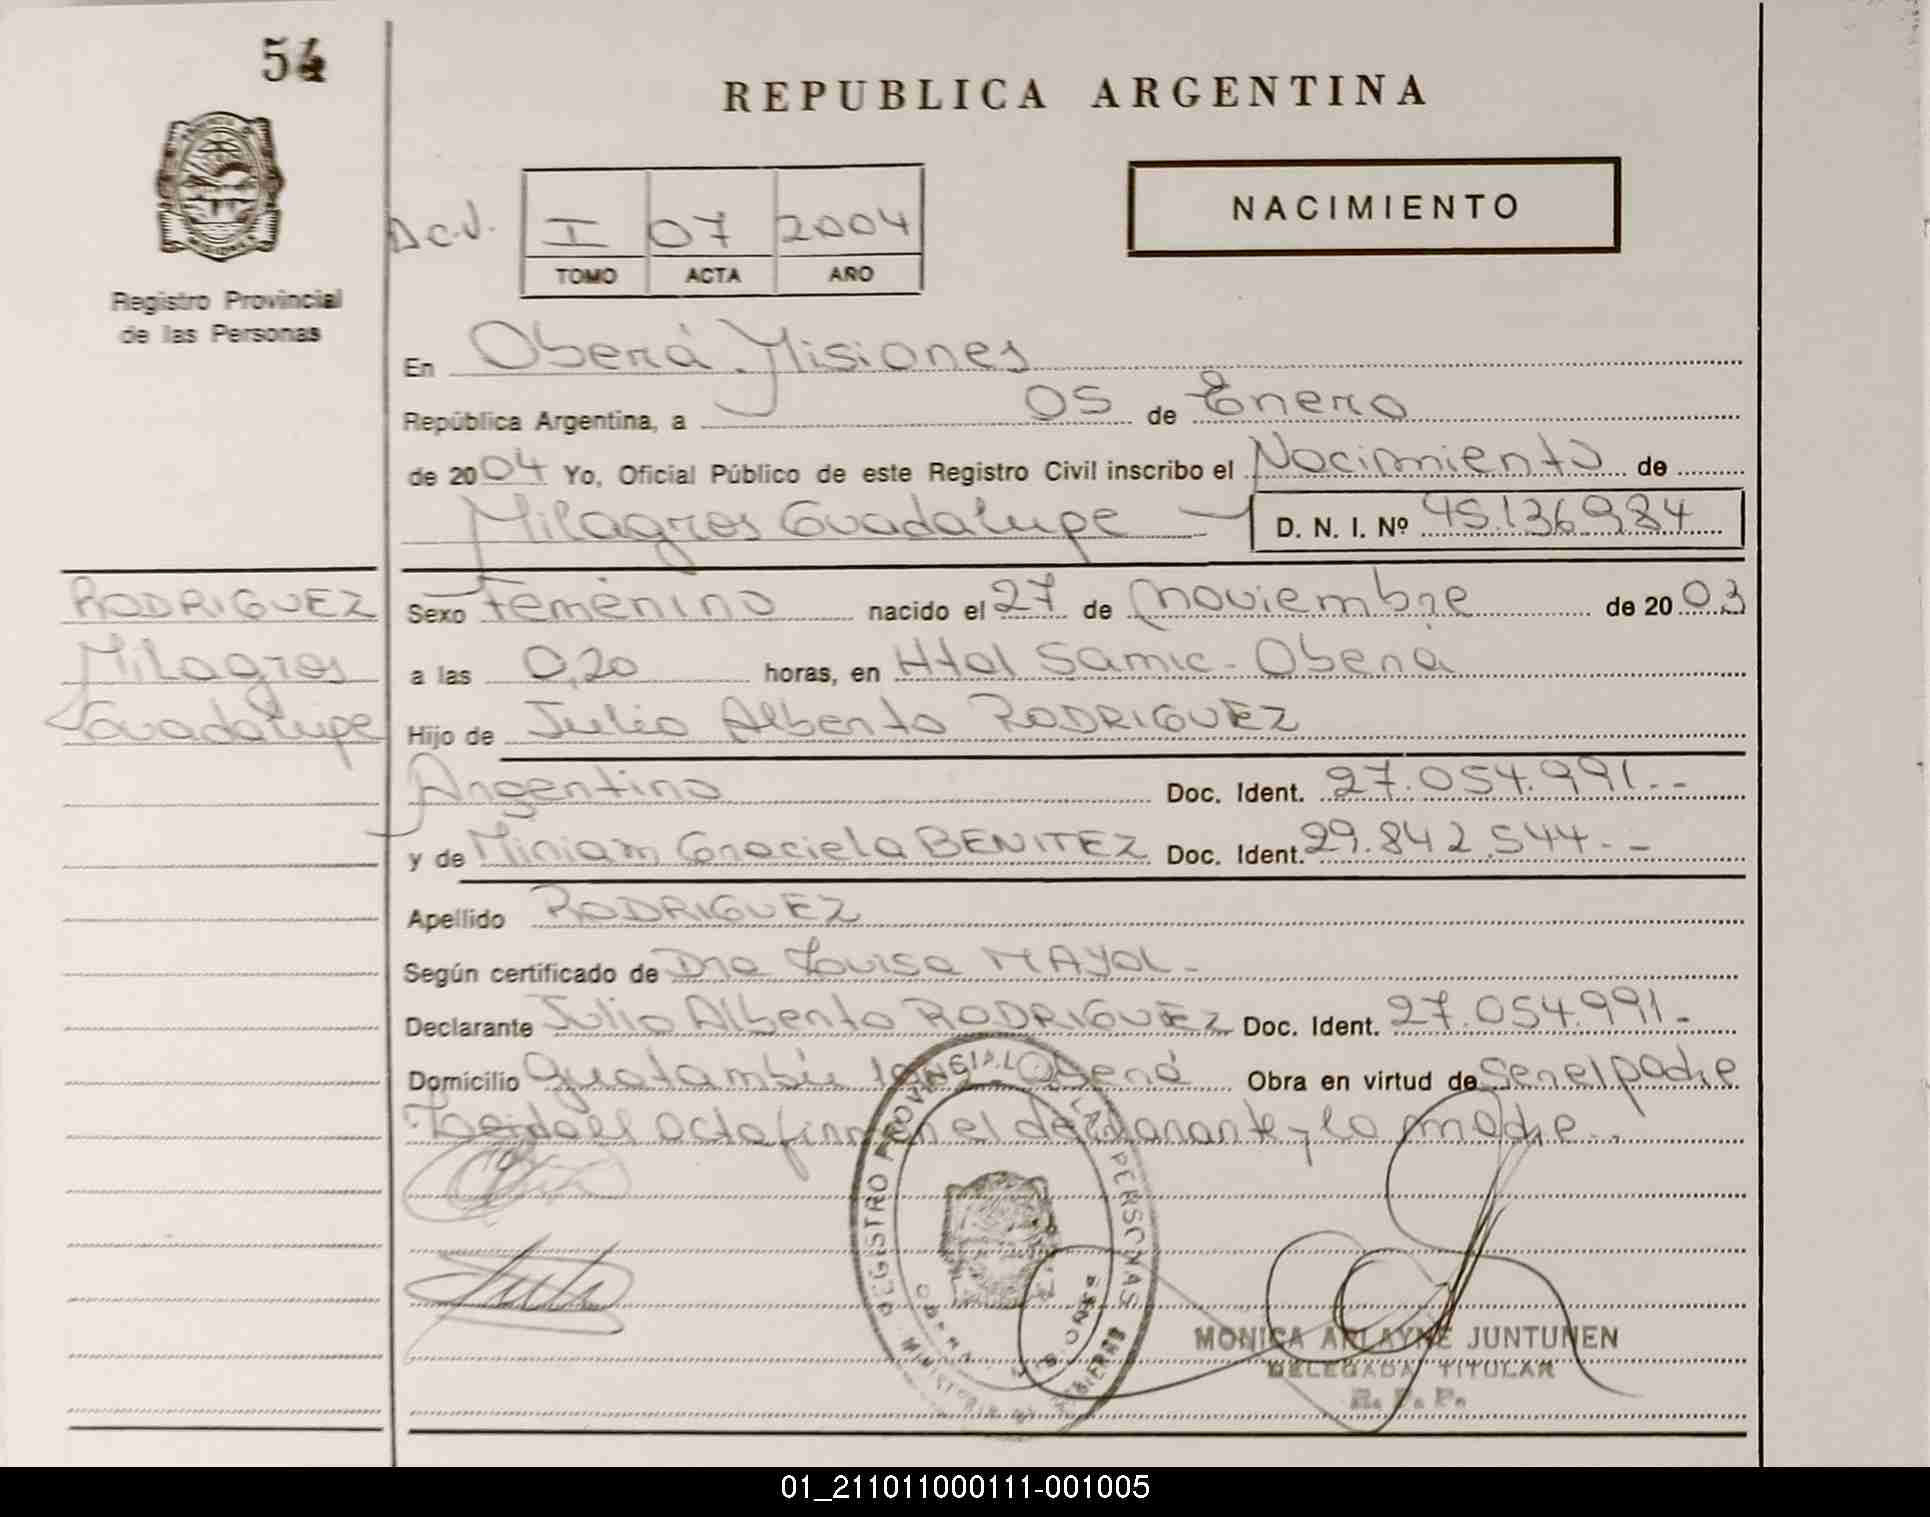 54
REPUBLICA ARGENTINA
NACIMIENTO
D.C.V. I 07 2004
TOMO ACTA AÑO
Registro Provincial
de las Personas
En Oberá Misiones
República Argentina, a 05 de Enero
de 2004 Yo, Oficial Público de este Registro Civil inscribo el Nacimiento de
Milagros Guadalupe D. N. I. Nº 45.136.984
RODRIGUEZ
Milagros
Guadalupe
Sexo Femenino nacido el 27 de noviembre de 2003
a las 0,20 horas, en Htal Samic - Oberá
Hijo de Julio Alberto RODRIGUEZ
Argentino Doc. Ident. 27.054.991.--
y de Miriam Graciela BENITEZ Doc. Ident. 29.842.544.--
Apellido RODRIGUEZ
Según certificado de Dra Louisa MAYOL -
Declarante Julio Alberto RODRIGUEZ Doc. Ident. 27.054.991.-
Domicilio Guatambú Oberá Obra en virtud de ser el padre
Leida el acta firman el declarante y la madre.-
REGISTRO PROVINCIAL DE LAS PERSONAS
MONICA ARLAYNE JUNTUNEN
DELEGADA TITULAR
R. P. P.
01_211011000111-001005